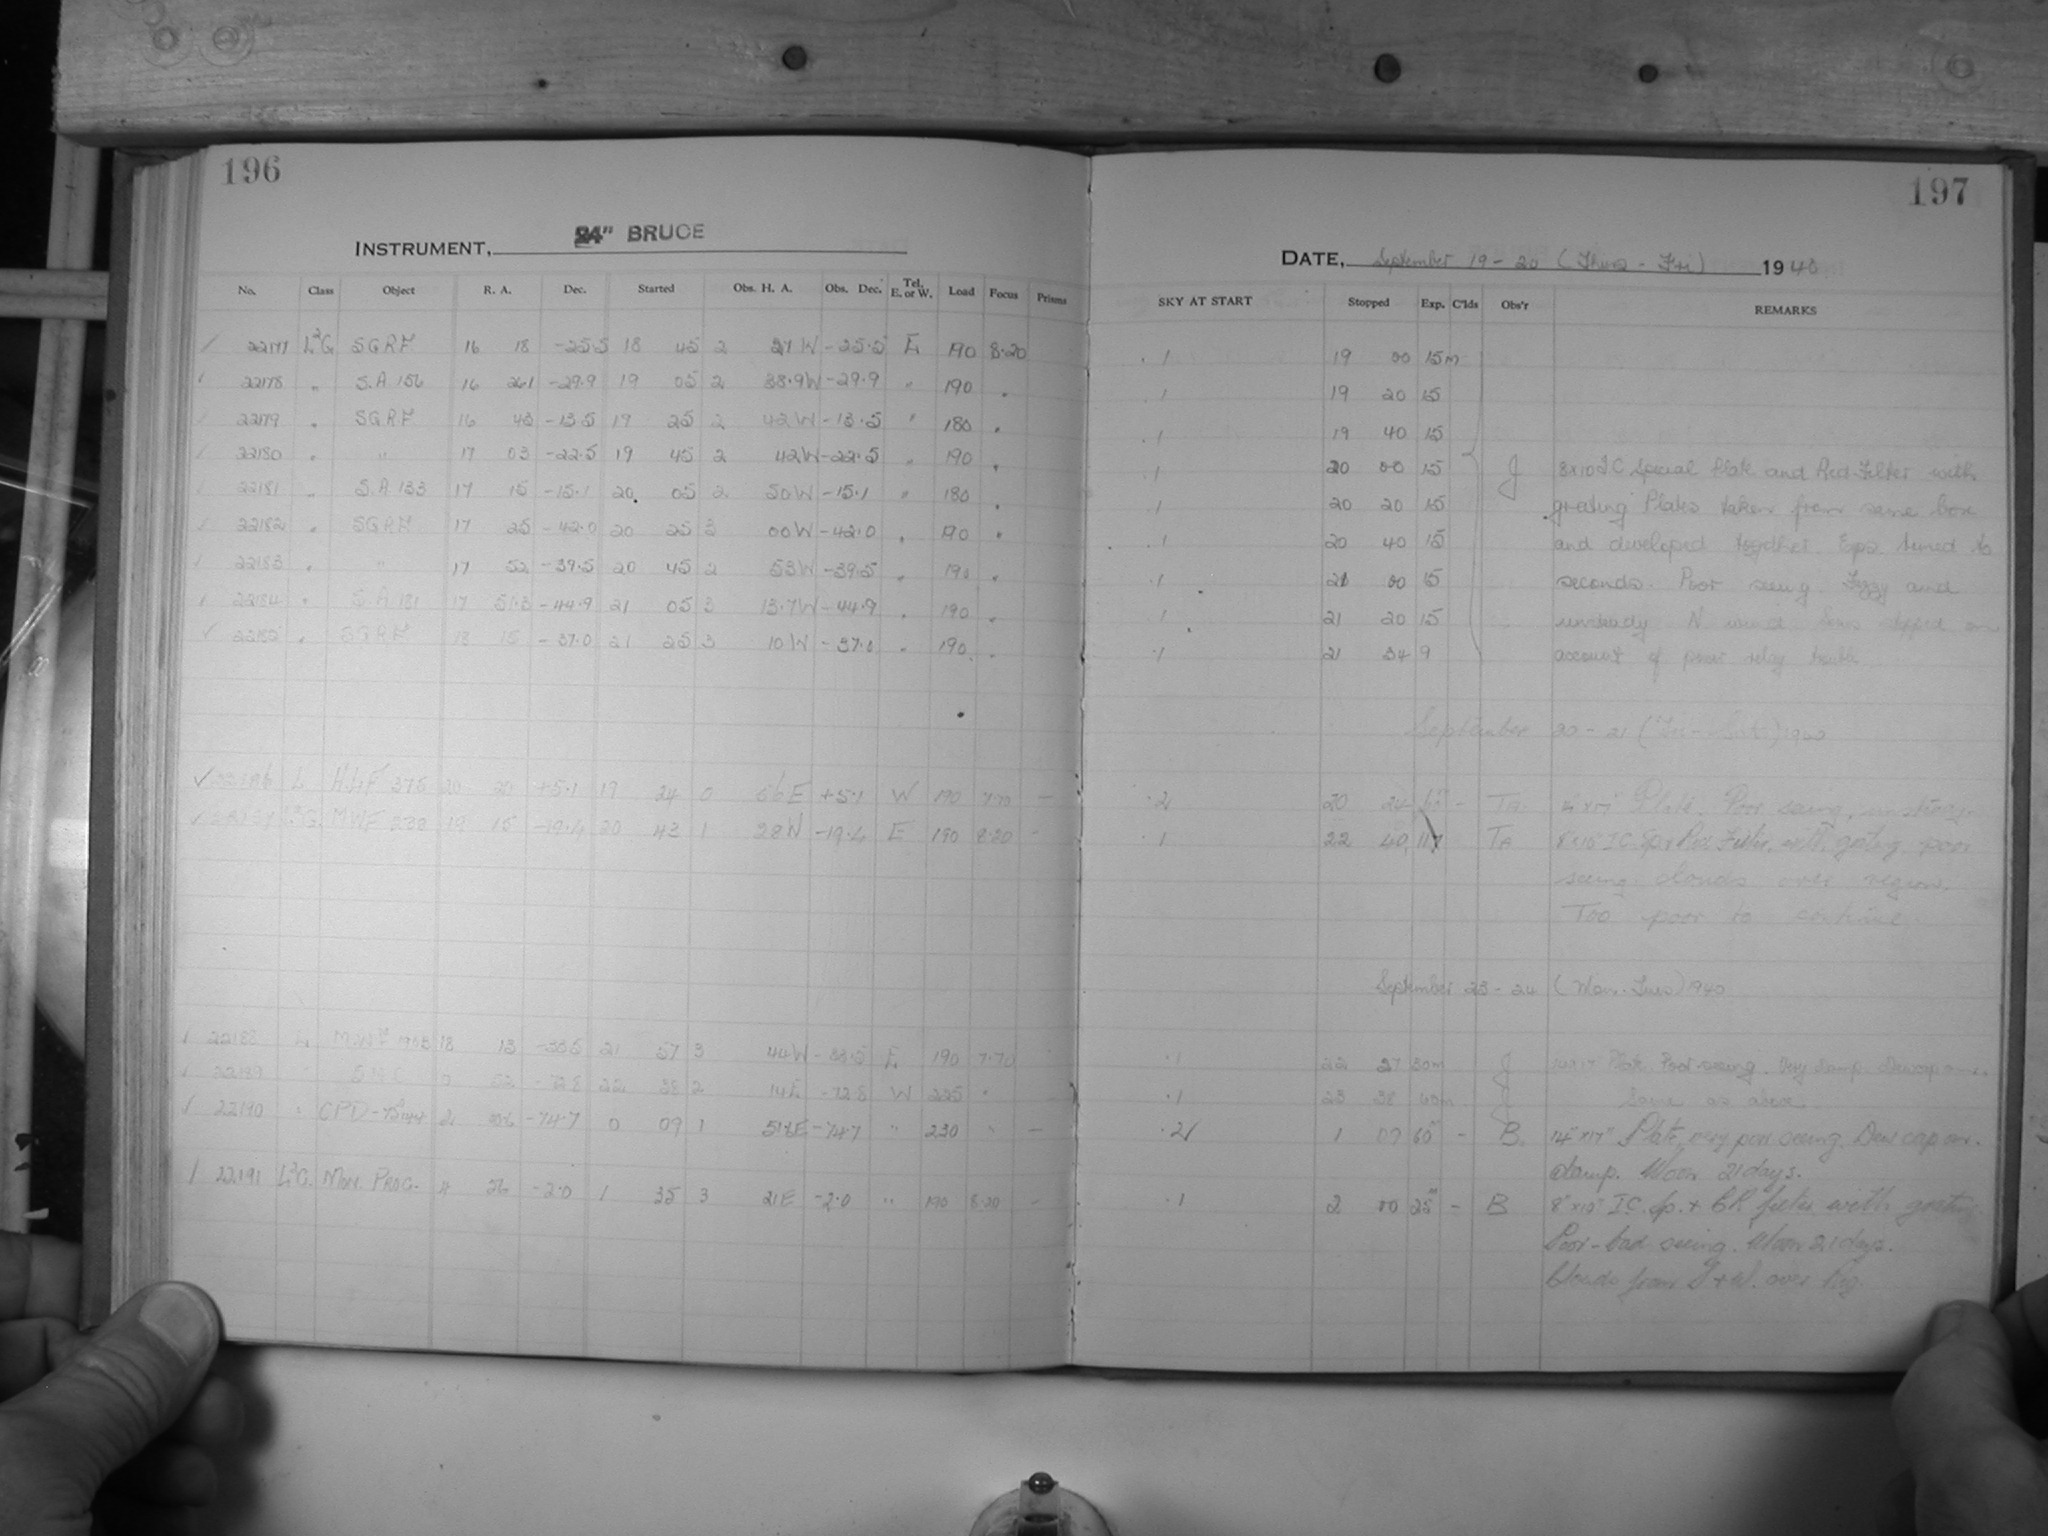 196
197
INSTRUMENT, 24" BRUCE
DATE, September 19 - 20 (Thurs - Fri) 1940
No. Class Object R. A. Dec. Started Obs. H. A. Obs. Dec. Tel. E. or W. Load Focus Prisms
SKY AT START Stopped Exp. C'lds Obs'r REMARKS
22177 SGRF 16 18 -25.5 18 45 2 27 W -25.5 E 190 8.20 .1 19 00 15m
22178 " S.A. 156 16 26.1 -29.9 19 05 2 38.9W -29.9 " 190 " .1 19 20 15
22179 " SGRF 16 43 -13.5 19 25 2 42W -13.5 " 180 " .1 19 40 15
22180 " " 17 03 -22.5 19 45 2 42W -22.5 " 190 " .1 20 00 15 J 8x10 I C Special Plate and Red Filter with
22181 " S.A 133 17 15 -15.1 20 05 2 50W -15.1 " 180 " .1 20 20 15 grating Plates taken from same box
22182 " SGRF 17 25 -42.0 20 25 3 00W -42.0 " 190 " .1 20 40 15 and developed together. Exps. timed to
22183 " " 17 52 -39.5 20 45 2 53W -39.5 " 190 " .1 21 00 15 seconds. Poor seeing. Foggy and
22184 " S.A. 181 17 51.3 -44.9 21 05 3 13.7W -44.9 " 190 " .1 21 20 15 unsteady N wind stopped on
22185 " SGRF 18 15 -37.0 21 25 3 10W -37.0 " 190 " .1 21 34 9 account of relay trouble
September 20 - 21 (Fri - Sat) 1940
22186 L 20 20 +5.1 19 24 0 56E +5.1 W 190 7.70 - .2 20 24 60 - Ta 14x17 Plate. Poor seeing, unsteady.
MWF 238 19 15 -19.4 20 43 1 28W -19.4 E 190 8.20 - .1 22 40 117 Ta 8x10 I C Sp. + Red Filter, with grating poor
seeing clouds over region.
Too poor to continue.
September 23 - 24 (Mon. Tues) 1940
22188 L MWF 18 13 -33.5 21 57 3 44W -33.5 E 190 7.70 .1 22 27 30m J 14x17 Plate Poor seeing. Very damp. Dewcap on.
22189 " SMC 0 52 -72.8 22 38 2 14E -72.8 W 225 " .1 23 38 60m J Same as above
22190 " CPD 2 -74.7 0 09 1 -74.7 " 230 " - .2 1 09 60 - B. 14"x17" Plate, very poor seeing. Dew cap on.
damp. Moon 21 days.
22191 Mon. Prog. 4 56 -2.0 1 35 3 21E -2.0 " 190 8.20 - .1 2 00 25 - B 8"x10" I.C. Sp. + CR filter with grating
Poor-bad seeing. Moon 21 days.
Clouds from S + W. over Reg.